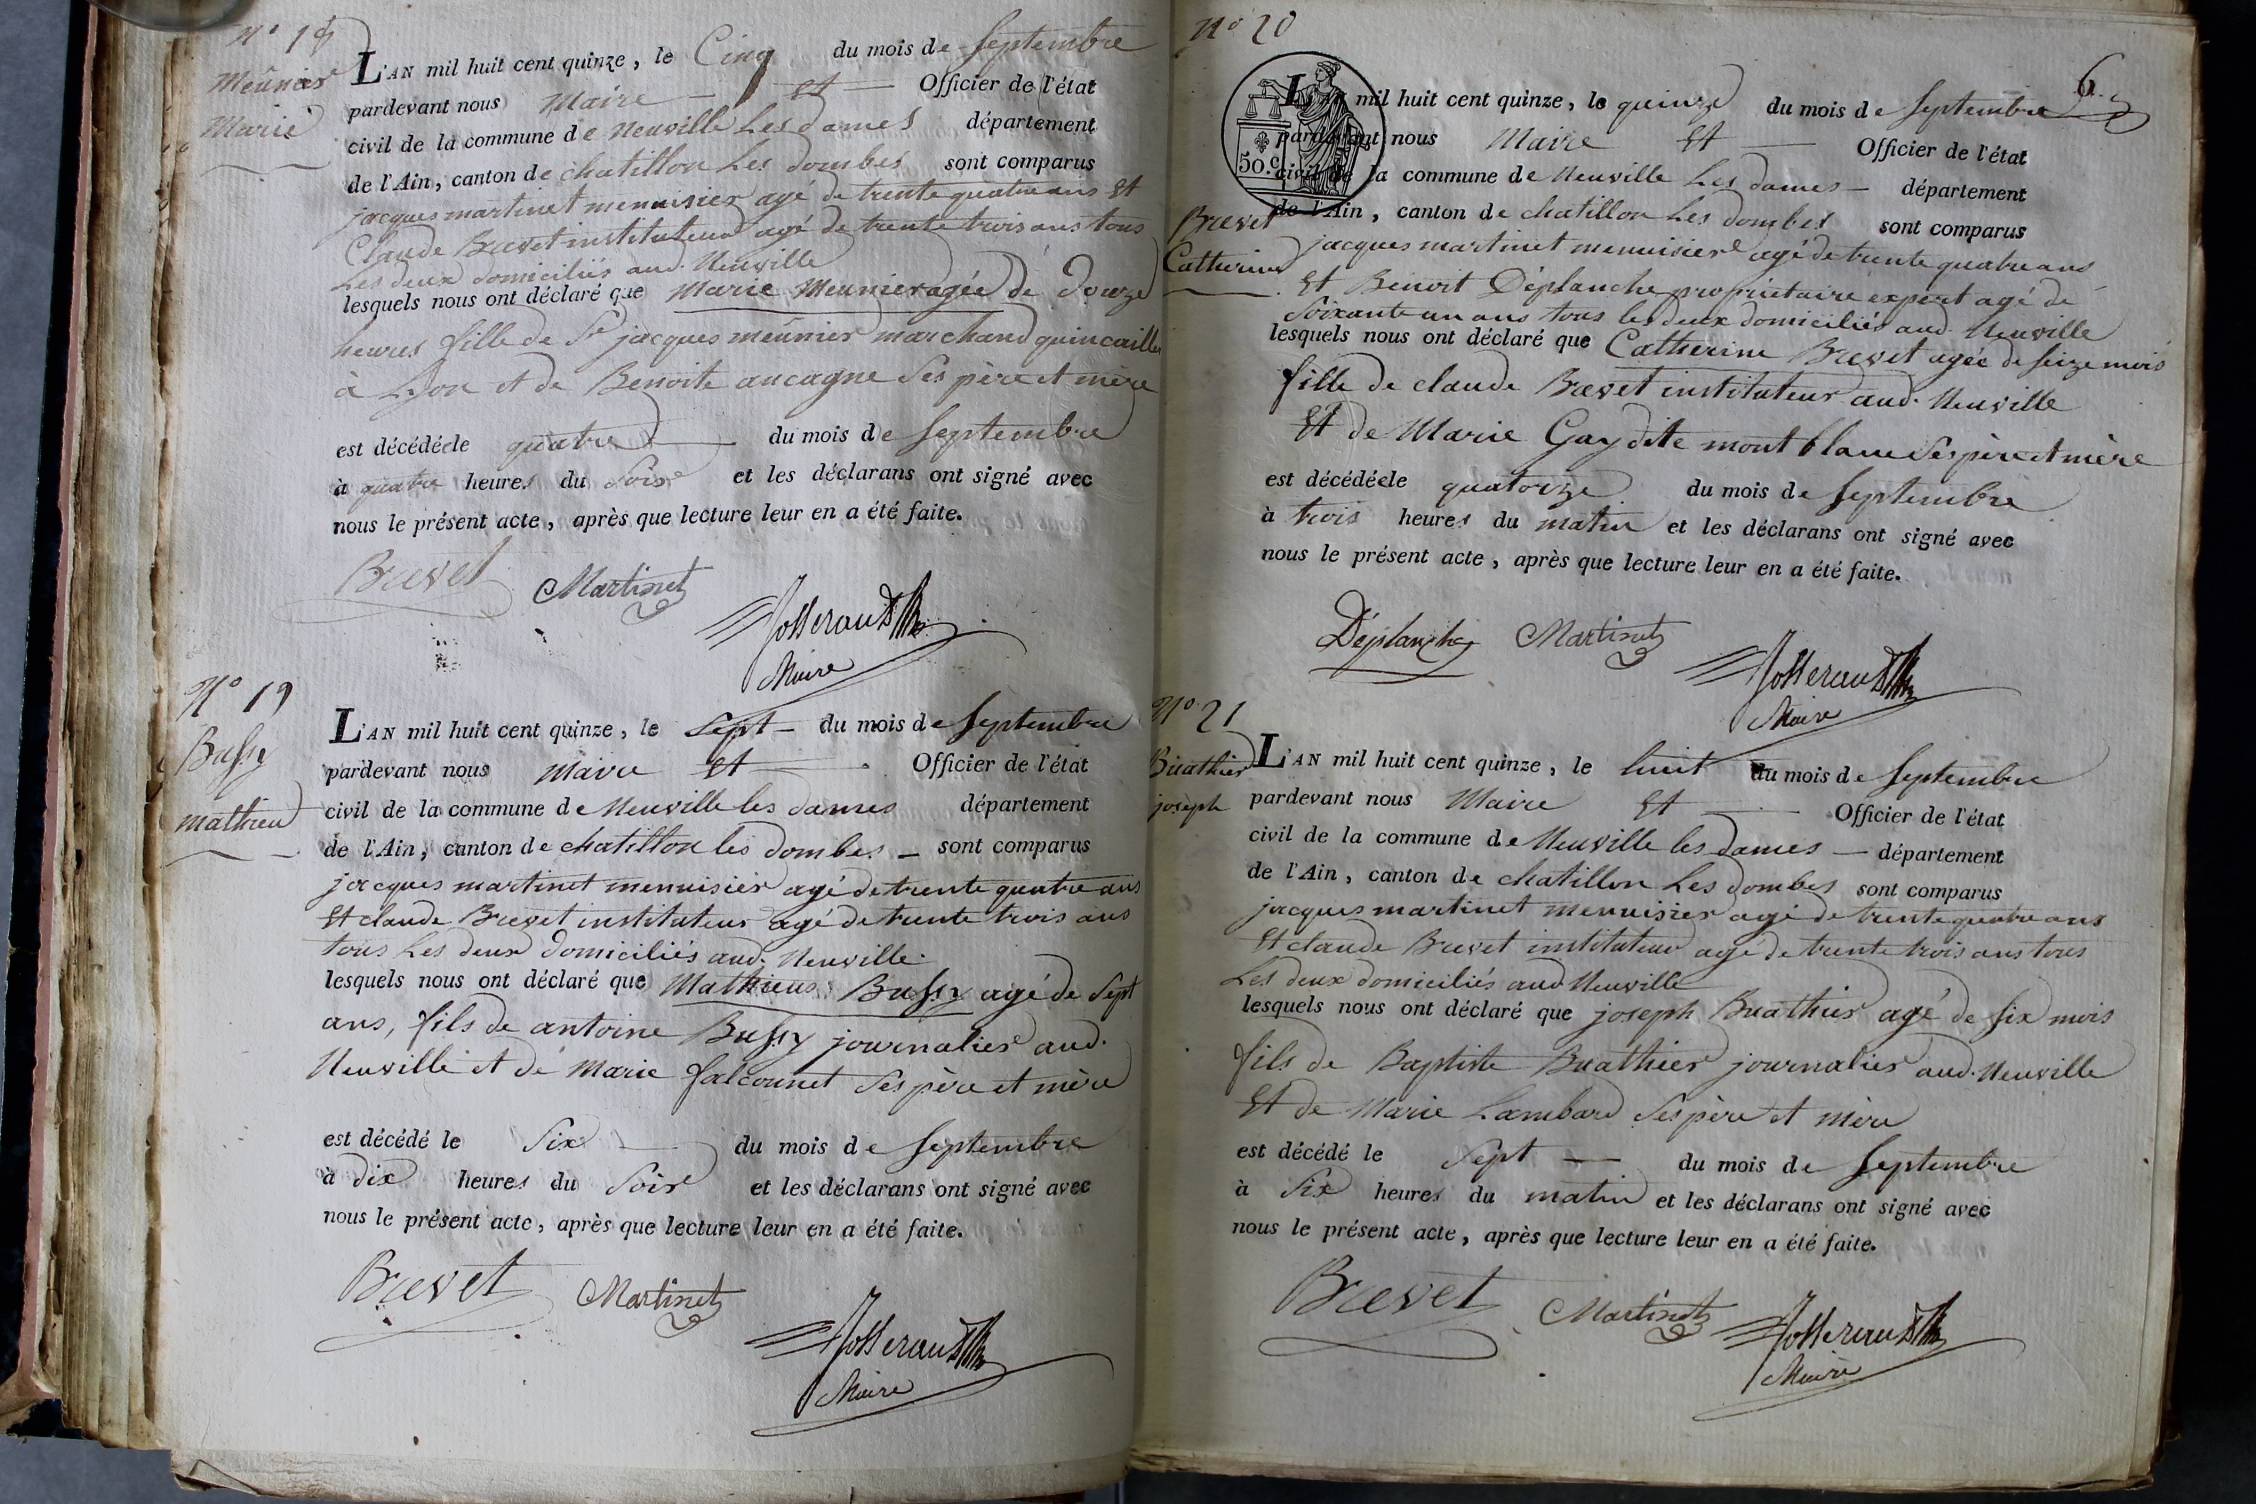 N° 18
Meûnier
Marie
L'AN mil huit cent quinze, le Cinq du mois de Septembre
pardevant nous Maire Et Officier de l'état
civil de la commune de Neuville Les dames département
de l'Ain, canton de chatillon Les dombes sont comparus
jacques martinet menuisier agé de trente quatre ans Et
Claude Brevet instituteur agé de trente trois ans tous
Les deux domiciliés aud. Neuville
lesquels nous ont déclaré que Marie Meunier agée de douze
heures fille de Sr jacques meûnier marchand quincaillier
à Lyon et de Benoite aucagne Ses père et mère
est décédée le quatre du mois de Septembre
à quatre heures du Soir et les déclarans ont signé avec
nous le présent acte, après que lecture leur en a été faite.
Brevet Martinet Josserand
Maire
N° 19
Bussy
mathieu
L'AN mil huit cent quinze, le Sept du mois de Septembre
pardevant nous Maire Et Officier de l'état
civil de la commune de Neuville les dames département
de l'Ain, canton de chatillon les dombes sont comparus
jacques martinet menuisier agé de trente quatre ans
Et claude Brevet instituteur agé de trente trois ans
tous Les deux domiciliés aud. Neuville.
lesquels nous ont déclaré que Mathieu Bussy agé de Sept
ans, fils de antoine Bussy journalier aud.
Neuville et de Marie falconnet Ses père et mère
est décédé le Six du mois de Septembre
à dix heures du Soir et les déclarans ont signé avec
nous le présent acte, après que lecture leur en a été faite.
Brevet Martinet Josserand
Maire
N° 20
6
50.c
Brevet
Catherine
L'AN mil huit cent quinze, le quinze du mois de Septembre
pardevant nous Maire Et Officier de l'état
civil de la commune de Neuville Les dames département
de l'Ain, canton de chatillon Les dombes sont comparus
jacques martinet menuisier agé de trente quatre ans
Et Benoit Déplanche proprietaire expert agé de
Soixante un ans tous les deux domiciliés aud. Neuville
lesquels nous ont déclaré que Catherine Brevet agée de seize mois
fille de claude Brevet instituteur aud. Neuville
Et de Marie Gay dite mont blanc Ses père et mère
est décédée le quatorze du mois de Septembre
à trois heures du matin et les déclarans ont signé avec
nous le présent acte, après que lecture leur en a été faite.
Déplanche Martinet Josserand
Maire
N° 21
Buathier
joseph
L'AN mil huit cent quinze, le huit du mois de Septembre
pardevant nous Maire Et Officier de l'état
civil de la commune de Neuville les dames département
de l'Ain, canton de chatillon Les dombes sont comparus
jacques martinet menuisier agé de trente quatre ans
Et claude Brevet instituteur agé de trente trois ans tous
Les deux domiciliés aud Neuville
lesquels nous ont déclaré que joseph Buathier agé de six mois
fils de Baptiste Buathier journalier aud. Neuville
Et de Marie Lambard Ses père et mère
est décédé le Sept du mois de Septembre
à Six heures du matin et les déclarans ont signé avec
nous le présent acte, après que lecture leur en a été faite.
Brevet Martinet Josserand
Maire